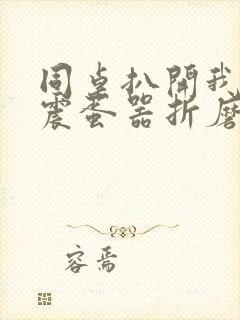 同桌扒開我
震蛋器折磨
容焉